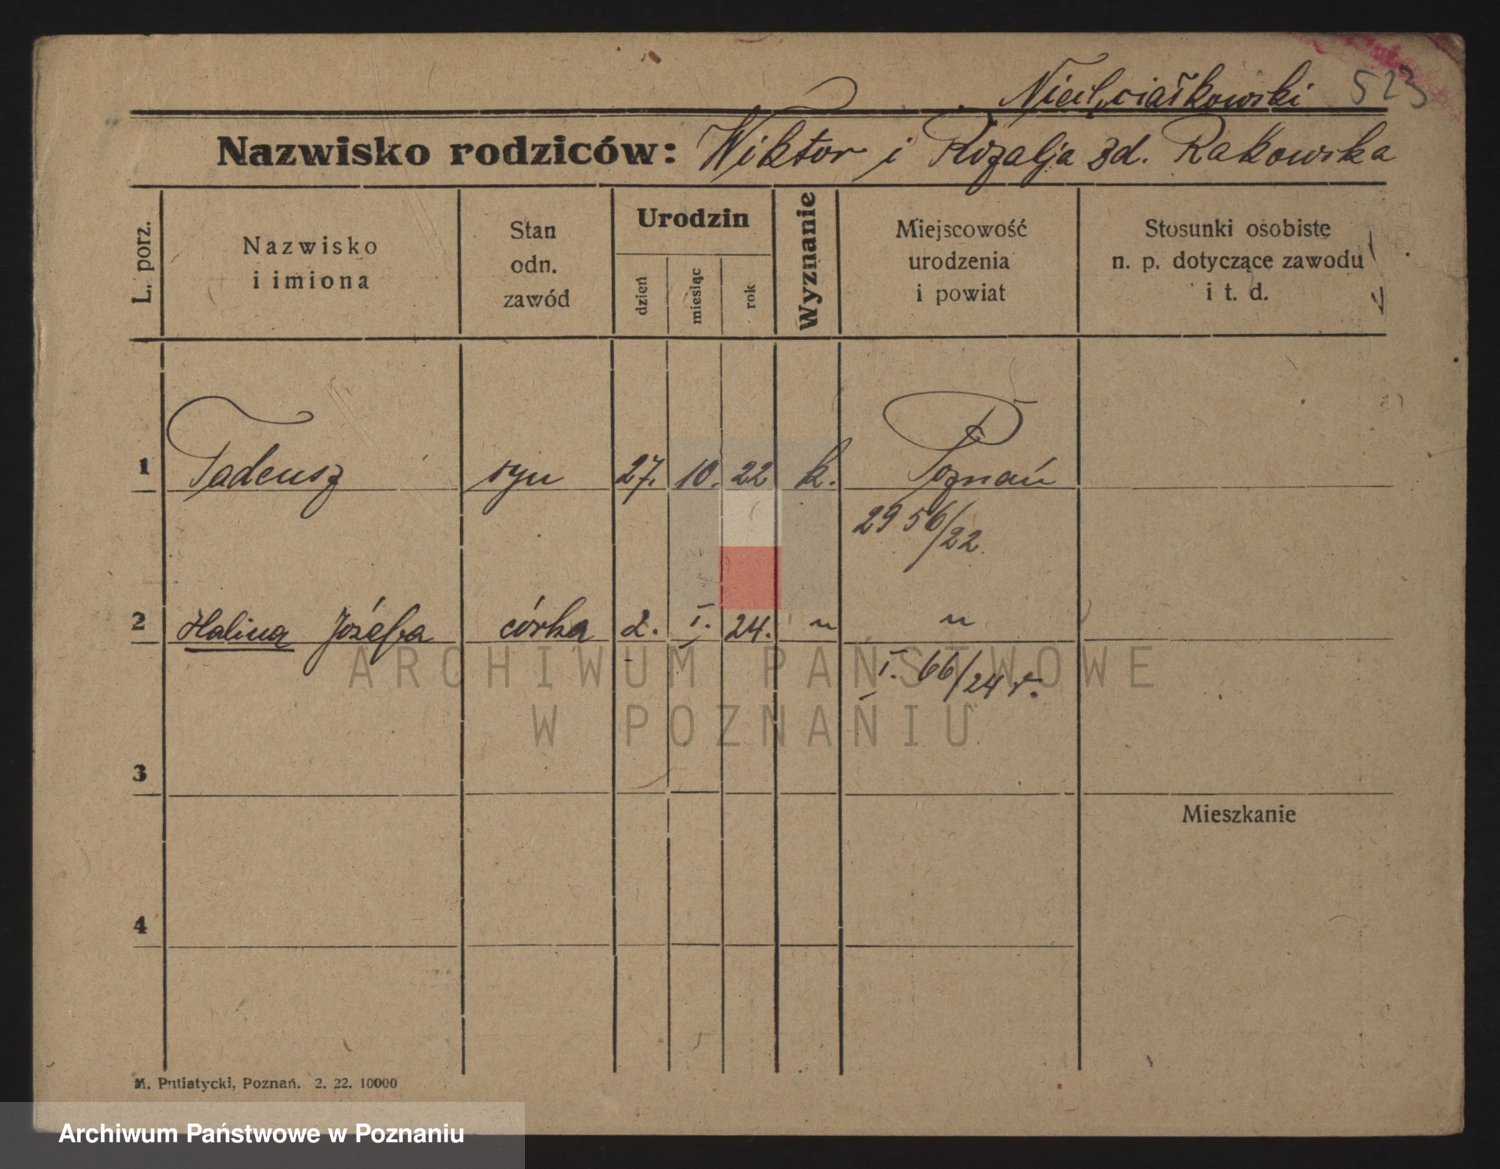 523
Nazwisko rodziców: Wiktor i Rozalja zd. Rakowska
L. porz.
Nazwisko
i imiona
Stan
odn.
zawód
Urodzin
dzień
miesiąc
rok
Wyznanie
Miejscowość
urodzenia
i powiat
Stosunki osobiste
n. p. dotyczące zawodu
i t. d.
1 Tadeusz syn 27. 10. 22 k. Poznań
2956/22
2 Halina Józefa córka 2. I. 24. " "
I. 66/24 r.
ARCHIWUM PAŃSTWOWE
W POZNANIU
3
Mieszkanie
4
M. Putiatycki, Poznań. 2. 22. 10000
Archiwum Państwowe w Poznaniu